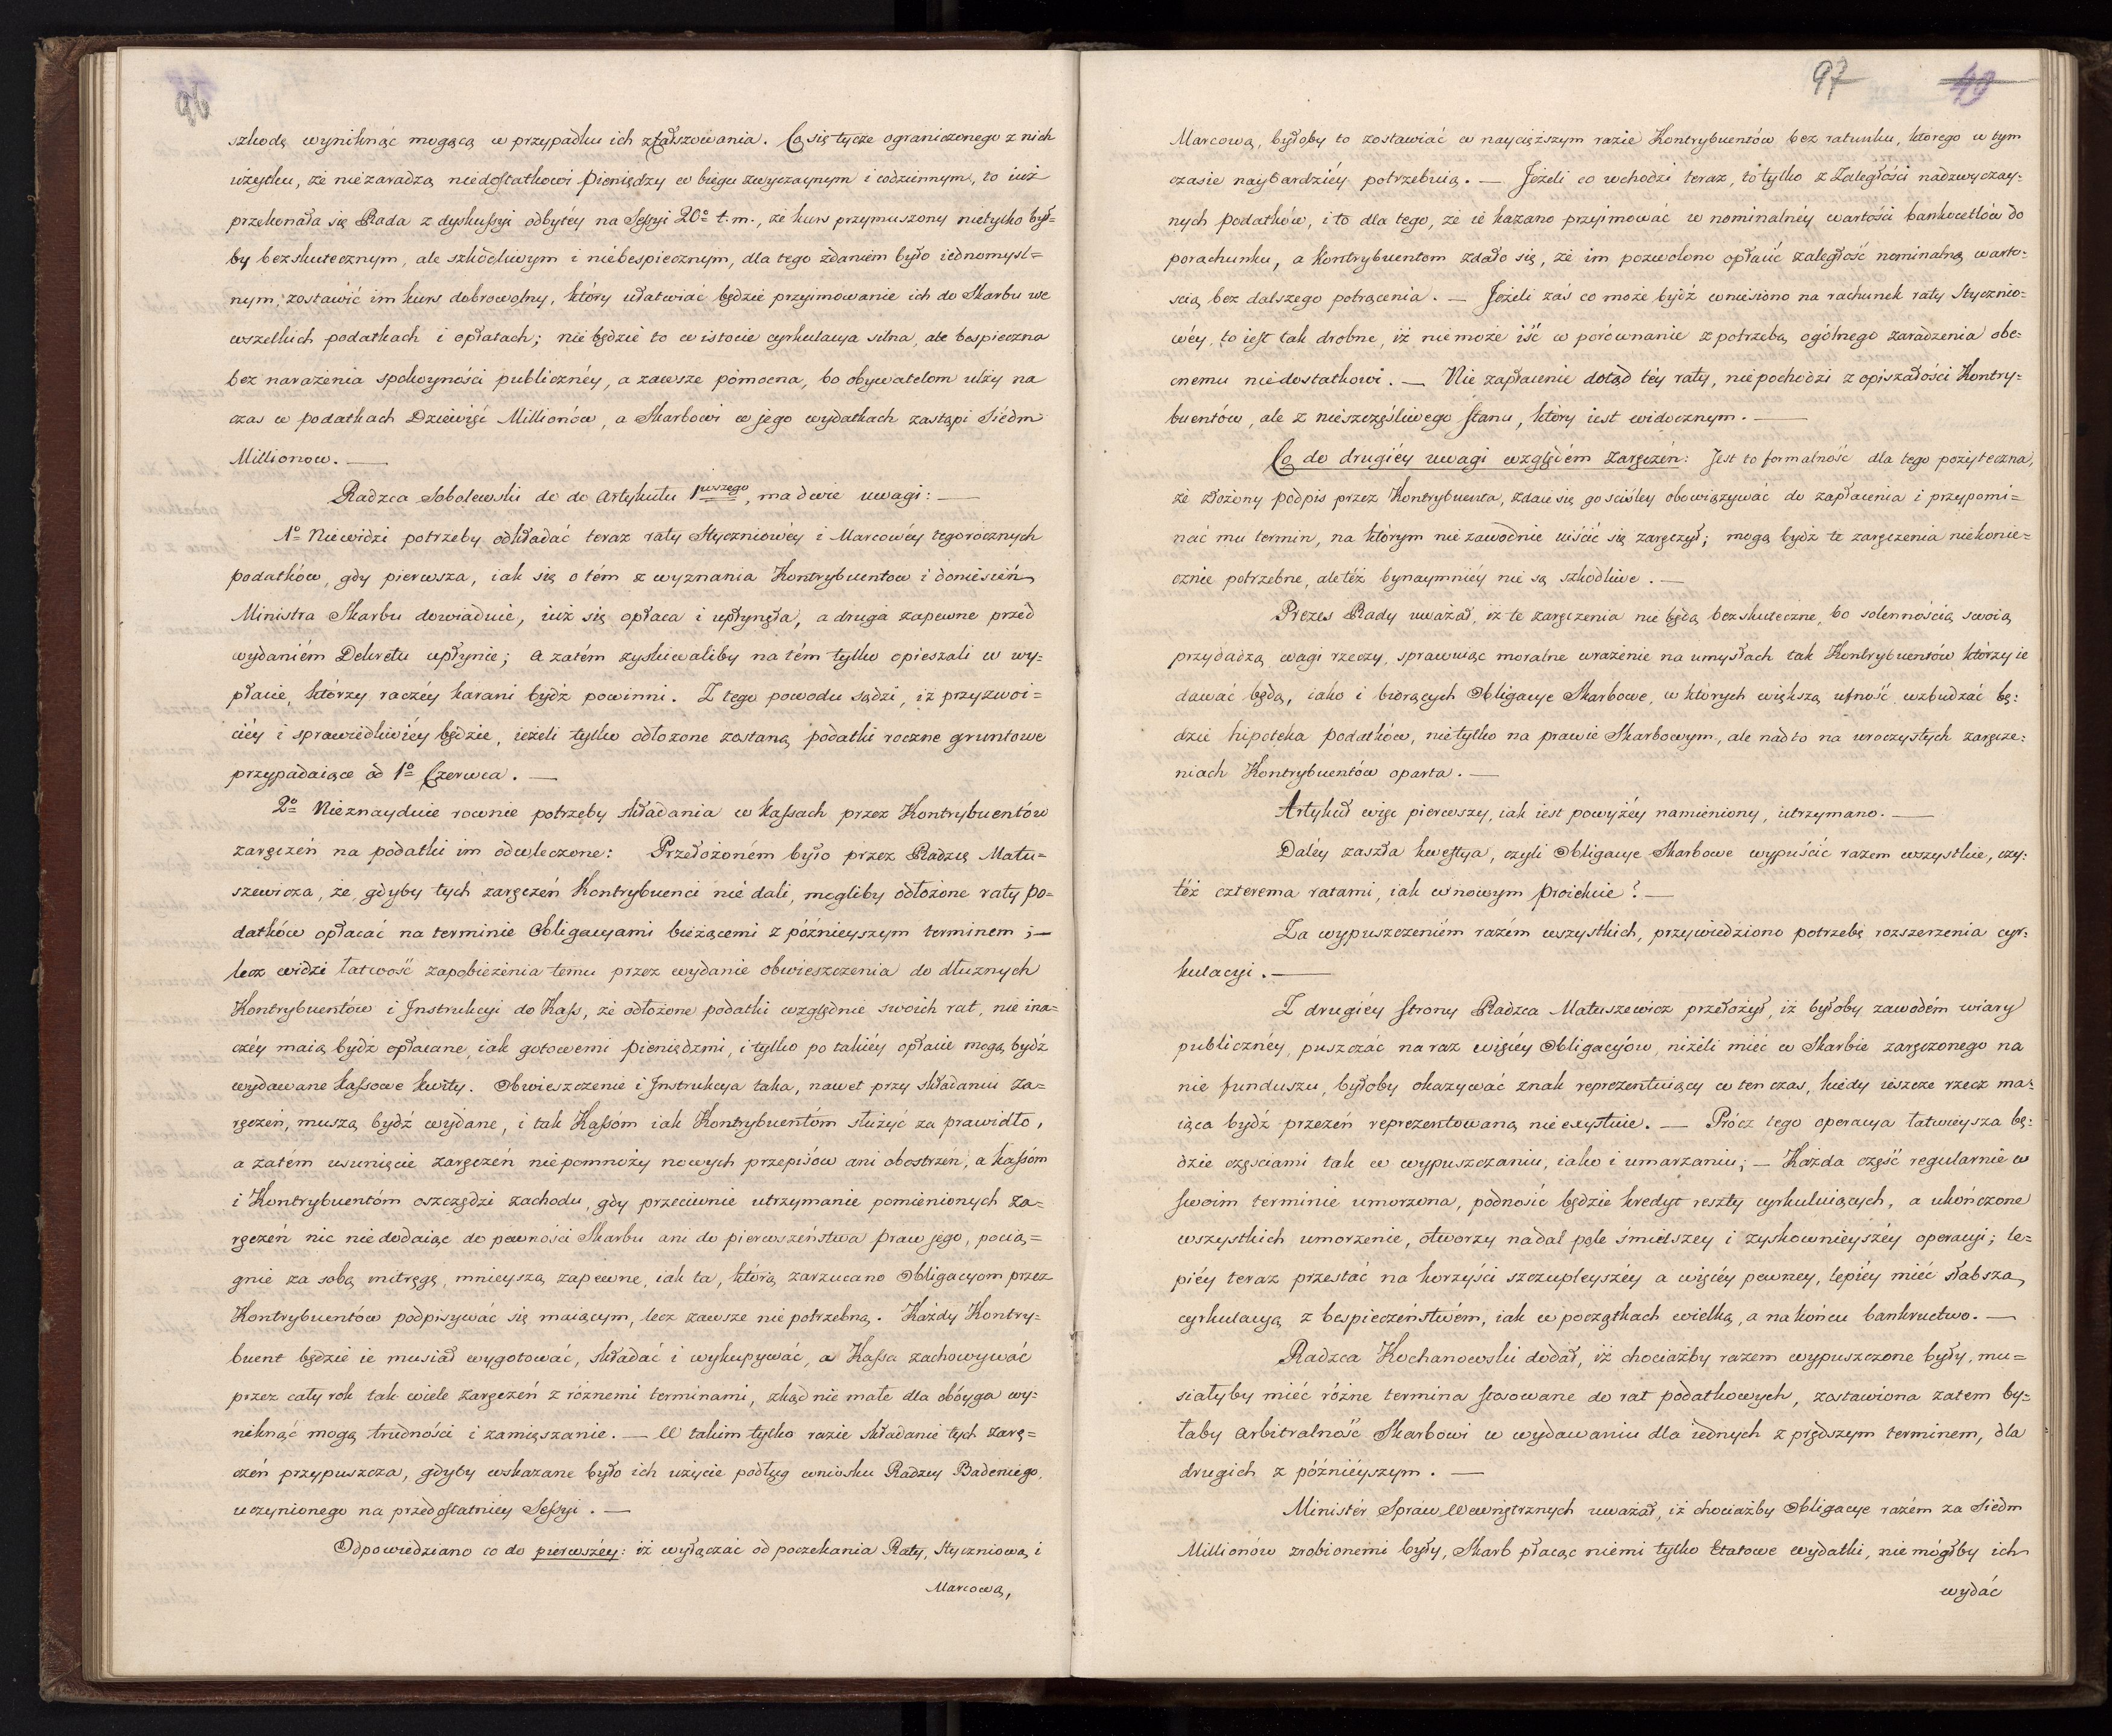 96
szkodą wyniknąć mogącą w przypadku ich zfałszowania. Co się tycze ograniczonego z nich
użytku, że niezaradzą niedostatkowi pieniędzy w biegu zwyczaynym i codziennym, to iuż
przekonała się Rada z dyskussyi odbytéy na Sessyi 20º t. m., że kurs przymuszony nietylko był=
by bezskutecznym, ale szkodliwym i niebespiecznym, dla tego zdaniem było iednomysl=
nym, zostawić im kurs dobrowolny, który ułatwiać będzie przyimowanie ich do Skarbu we
wszelkich podatkach i opłatach; nie będzie to w istocie cyrkulacya silna, ale bespieczna
bez narażenia spokoyności publicznéy, a zawsze pomocna, bo obywatelom ulży na
czas w podatkach Dziewięć Millionów, a Skarbowi w jego wydatkach zastąpi Siedm
Millionow. —
Radzca Sobolewski do do artykułu 1wszego, ma dwie uwagi: —
1º Niewidzi potrzeby odkładać teraz raty Styczniowéy i Marcowéy tegorocznych
podatków, gdy pierwsza, iak się o tém z wyznania Kontrybuentow i doniesień
Ministra Skarbu dowiaduie, iuż się opłaca i upłynęła, a druga zapewne przed
wydaniém Dekretu upłynie; a zatém zyskiwaliby na tém tylko opieszali w wy=
płacie, którzy raczéy karani bydź powinni. Z tego powodu sądzi, iż przyzwoi=
ciéy i sprawiedliwiéy będzie, ieżeli tylko odłożone zostaną podatki roczne gruntowe
przypadaiące od 1º Czerwca. —
2º Nieznayduie rownie potrzeby składania w Kassach przez Kontrybuentów
zaręczeń na podatki im odwleczone: Przełożoném było przez Radzcę Matu=
szewicza, że, gdyby tych zaręczeń Kontrybuenci nie dali, mogliby odłożone raty po=
datków opłacać na terminie Obligacyami bieżącemi z późnieyszym terminem; —
lecz widzi łatwość zapobieżenia temu przez wydanie obwieszczenia do dłużnych
Kontrybuentów i Instrukcyi do Kass, że odłożone podatki względnie swoich rat, nie ina=
czéy maią bydź opłacane, iak gotowemi pieniędzmi, i tylko po takiéy opłacie mogą bydź
wydawane kassowe kwity. Obwieszczenie i Instrukcya taka, nawet przy składaniu za=
ręczeń, muszą bydź wydane, i tak Kassóm iak Kontrybuentóm służyć za prawidło,
a zatém usunięcie zaręczeń niepomnoży nowych przepisów ani obostrzeń, a kassóm
i Kontrybuentóm oszczędzi zachodu, gdy przeciwnie utrzymanie pomienionych za=
ręczeń nic niedodaiąc do pewności Skarbu ani do pierwszeństwa praw jego, pocią=
gnie za sobą mitręgę, mnieyszą zapewne, iak ta, którą zarzucano Obligacyom przez
Kontrybuentów podpisywać się maiącym, lecz zawsze nie potrzebną. Każdy Kontry=
buent będzie ie musiał wygotować, składać i wykupywać, a Kassa zachowywać
przez cały rok tak wiele zaręczeń z różnemi terminami, zkąd nie małe dla obóyga wy=
niknąć mogą trudności i zamięszanie. — W takim tylko razie składanie tych zarę=
czeń przypuszcza, gdyby wskazane było ich użycie podług wniosku Radzcy Badeniego,
uczynionego na przedostatniey Sessyi. —
Odpowiedziano co do pierwszéy: iż wyłączać od poczekania Raty, Styczniową i
Marcową,
97 49
Marcową, byłoby to zostawiać w naycięższym razie Kontrybuentów bez ratunku, którego w tym
czasie naybardziéy potrzebuią. — Jeżeli co wchodzi teraz, to tylko z Zaległości nadzwyczay=
nych podatków, i to dla tego, że ie kazano przyimować w nominalnéy wartości bankocetlów do
porachunku, a Kontrybuentom zdało się, że im pozwolono opłacić zaległość nominalną warto=
scią bez dalszego potrącenia. — Jeżeli zaś co może bydź wniesiono na rachunek raty Stycznio=
wéy, to iest tak drobne, iż niemoże iść w porównanie z potrzebą ogólnego zaradzenia obe=
cnemu niedostatkowi. — Nie zapłacenie dotąd téy raty, niepochodzi z opiszałości Kontry=
buentów, ale z nieszczęśliwego stanu, który iest widocznym. —
Co do drugiéy uwagi względem zaręczeń: Jest to formalność dla tego pożyteczna,
że złożony podpis przez Kontrybuenta, zdaie się go ściśley obowiązywać do zapłacenia i przypomi=
nać mu termin, na którym niezawodnie uiścić się zaręczył; mogą bydż te zaręczenia niekonie=
cznie potrzebne, ale téż bynaymniéy nie są szkodliwe. —
Prezes Rady uważał, iż te zaręczenia nie będą bezskuteczne, bo solennością swoią
przydadzą wagi rzeczy, sprawuiąc moralne wrażenie na umysłach tak Kontrybuentów którzy ie
dawać będą, iako i biorących Obligacye Skarbowe, w których większą ufność wzbudzać bę=
dzie hipoteka podatków, nietylko na prawie Skarbowym, ale nadto na uroczystych zaręcze=
niach Kontrybuentów oparta. —
Artykuł więc pierwszy, iak iest powyżéy namieniony, utrzymano. —
Daléy zaszła kwestya, czyli Obligacye Skarbowe wypuścić razem wszystkie, czy=
téż czterema ratami, iak w nowym proiekcie? —
Za wypuszczeniém razém wszystkich, przywiedziono potrzebę rozszerzenia cyr=
kulacyi. —
Z drugiéy strony Radzca Matuszewicz przełożył, iż byłoby zawodém wiary
publicznéy, puszczać na raz więcéy Obligacyów, niżeli mieć w Skarbie zaręczonego na
nie funduszu, byłoby okazywać znak reprezentuiący w ten czas, kiedy ieszcze rzecz ma=
iąca bydź przezeń reprezentowaną nie exystuie. — Prócz tego operacya łatwieysza bę=
dzie częściami tak w wypuszczaniu, iako i umarzaniu; — Każda część regularnie w
swoim terminie umorzona, podnosić będzie kredyt reszty cyrkuluiących, a ukończone
wszystkich umorzenie, otworzy nadal pole śmielszey i zyskownieyszéy operacyi; le=
piéy teraz przestać na korzyści szczupleyszéy a więcéy pewney, lepiéy mieć słabszą
cyrkulacyą z bespieczeństwém, iak w początkach wielką, a na końcu bankructwo. —
Radzca Kochanowski dodał, iż chociażby razem wypuszczone były, mu=
siałyby mieć różne termina stosowane do rat podatkowych, zostawiona zatem by=
łaby arbitralność Skarbowi w wydawaniu dla iednych z prędszym terminem, dla
drugich z późniéyszym. —
Ministér Spraw Wewnętrznych uważał, iż chociażby Obligacye razém za Siedm
Millionów zrobionemi były, Skarb płacąc niemi tylko Etatowe wydatki, niemógłby ich
wydać